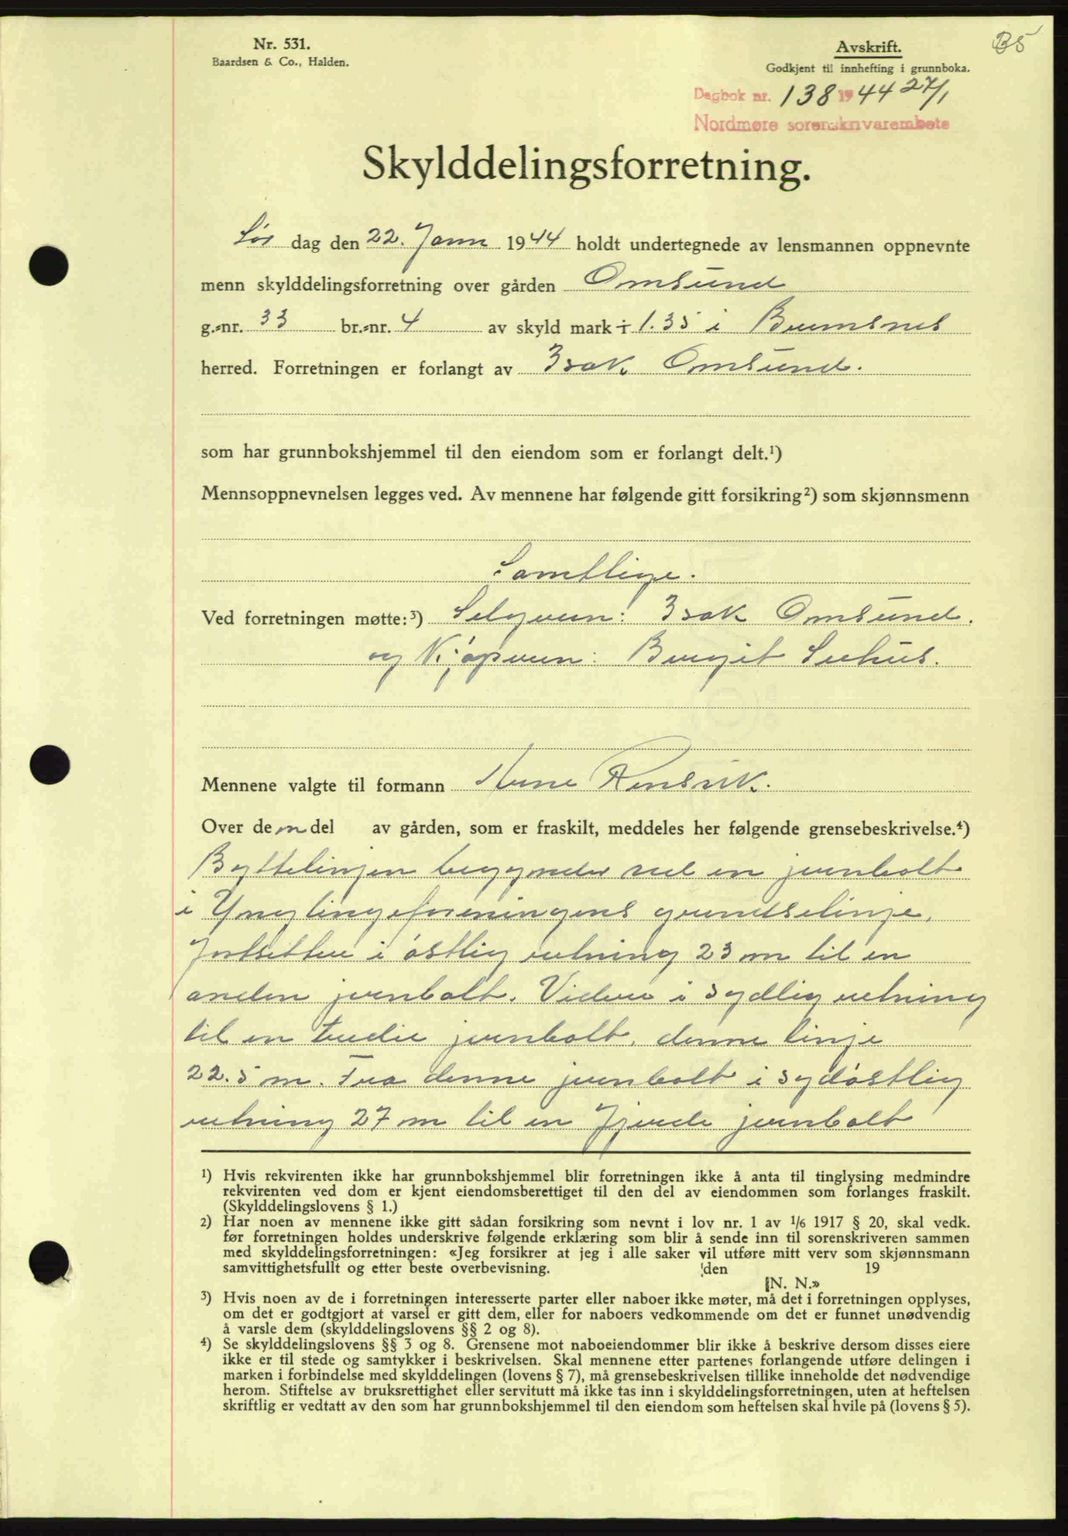 Nr. 531.
Baardsen & Co., Halden.
Avskrift.
Godkjent til innhefting i grunnboka.
Dagbok nr. 138 1944 27/1
Nordmøre sorenskrivarembete
Skylddelingsforretning.
Lør dag den 22. Jann 1944 holdt undertegnede av lensmannen oppnevnte
menn skylddelingsforretning over gården Omsund
g.-nr. 33 br.-nr. 4 av skyld mark ÷ 1.35 i Bremsnes
herred. Forretningen er forlangt av Isak Omsund.
som har grunnbokshjemmel til den eiendom som er forlangt delt.¹)
Mennsoppnevnelsen legges ved. Av mennene har følgende gitt forsikring²) som skjønnsmenn
Samtlige.
Ved forretningen møtte:³) Selgeren: Isak Omsund.
og Kjøperen: Bergit Seehus.
Mennene valgte til formann Arne Rensvik.
Over den del av gården, som er fraskilt, meddeles her følgende grensebeskrivelse.⁴)
Byttelinjen begynder ved en jernbolt
i Ynglingeforeningens grendselinje,
fortsetter i østlig retning 23 m til en
anden jernbolt. Videre i sydlig retning
til en tredie jernbolt, denne linje
22.5 m. Fra denne jernbolt i sydøstlig
retning 27 m til en fjerde jernbolt
¹) Hvis rekvirenten ikke har grunnbokshjemmel blir forretningen ikke å anta til tinglysing medmindre
rekvirenten ved dom er kjent eiendomsberettiget til den del av eiendommen som forlanges fraskilt.
(Skylddelingslovens § 1.)
²) Har noen av mennene ikke gitt sådan forsikring som nevnt i lov nr. 1 av 1/6 1917 § 20, skal vedk.
før forretningen holdes underskrive følgende erklæring som blir å sende inn til sorenskriveren sammen
med skylddelingsforretningen: «Jeg forsikrer at jeg i alle saker vil utføre mitt verv som skjønnsmann
samvittighetsfullt og etter beste overbevisning. den 19
N. N.»
³) Hvis noen av de i forretningen interesserte parter eller naboer ikke møter, må det i forretningen opplyses,
om det er godtgjort at varsel er gitt dem, eller for naboers vedkommende om det er funnet unødvendig
å varsle dem (skylddelingslovens §§ 2 og 8).
⁴) Se skylddelingslovens §§ 3 og 8. Grensene mot naboeiendommer blir ikke å beskrive dersom disses eiere
ikke er til stede og samtykker i beskrivelsen. Skal mennene etter partenes forlangende utføre delingen i
marken i forbindelse med skylddelingen (lovens § 7), må grensebeskrivelsen tillike inneholde det nødvendige
herom. Stiftelse av bruksrettighet eller servitutt må ikke tas inn i skylddelingsforretningen, uten at heftelsen
skriftlig er vedtatt av den som har grunnbokshjemmel til den eiendom som heftelsen skal hvile på (lovens § 5).